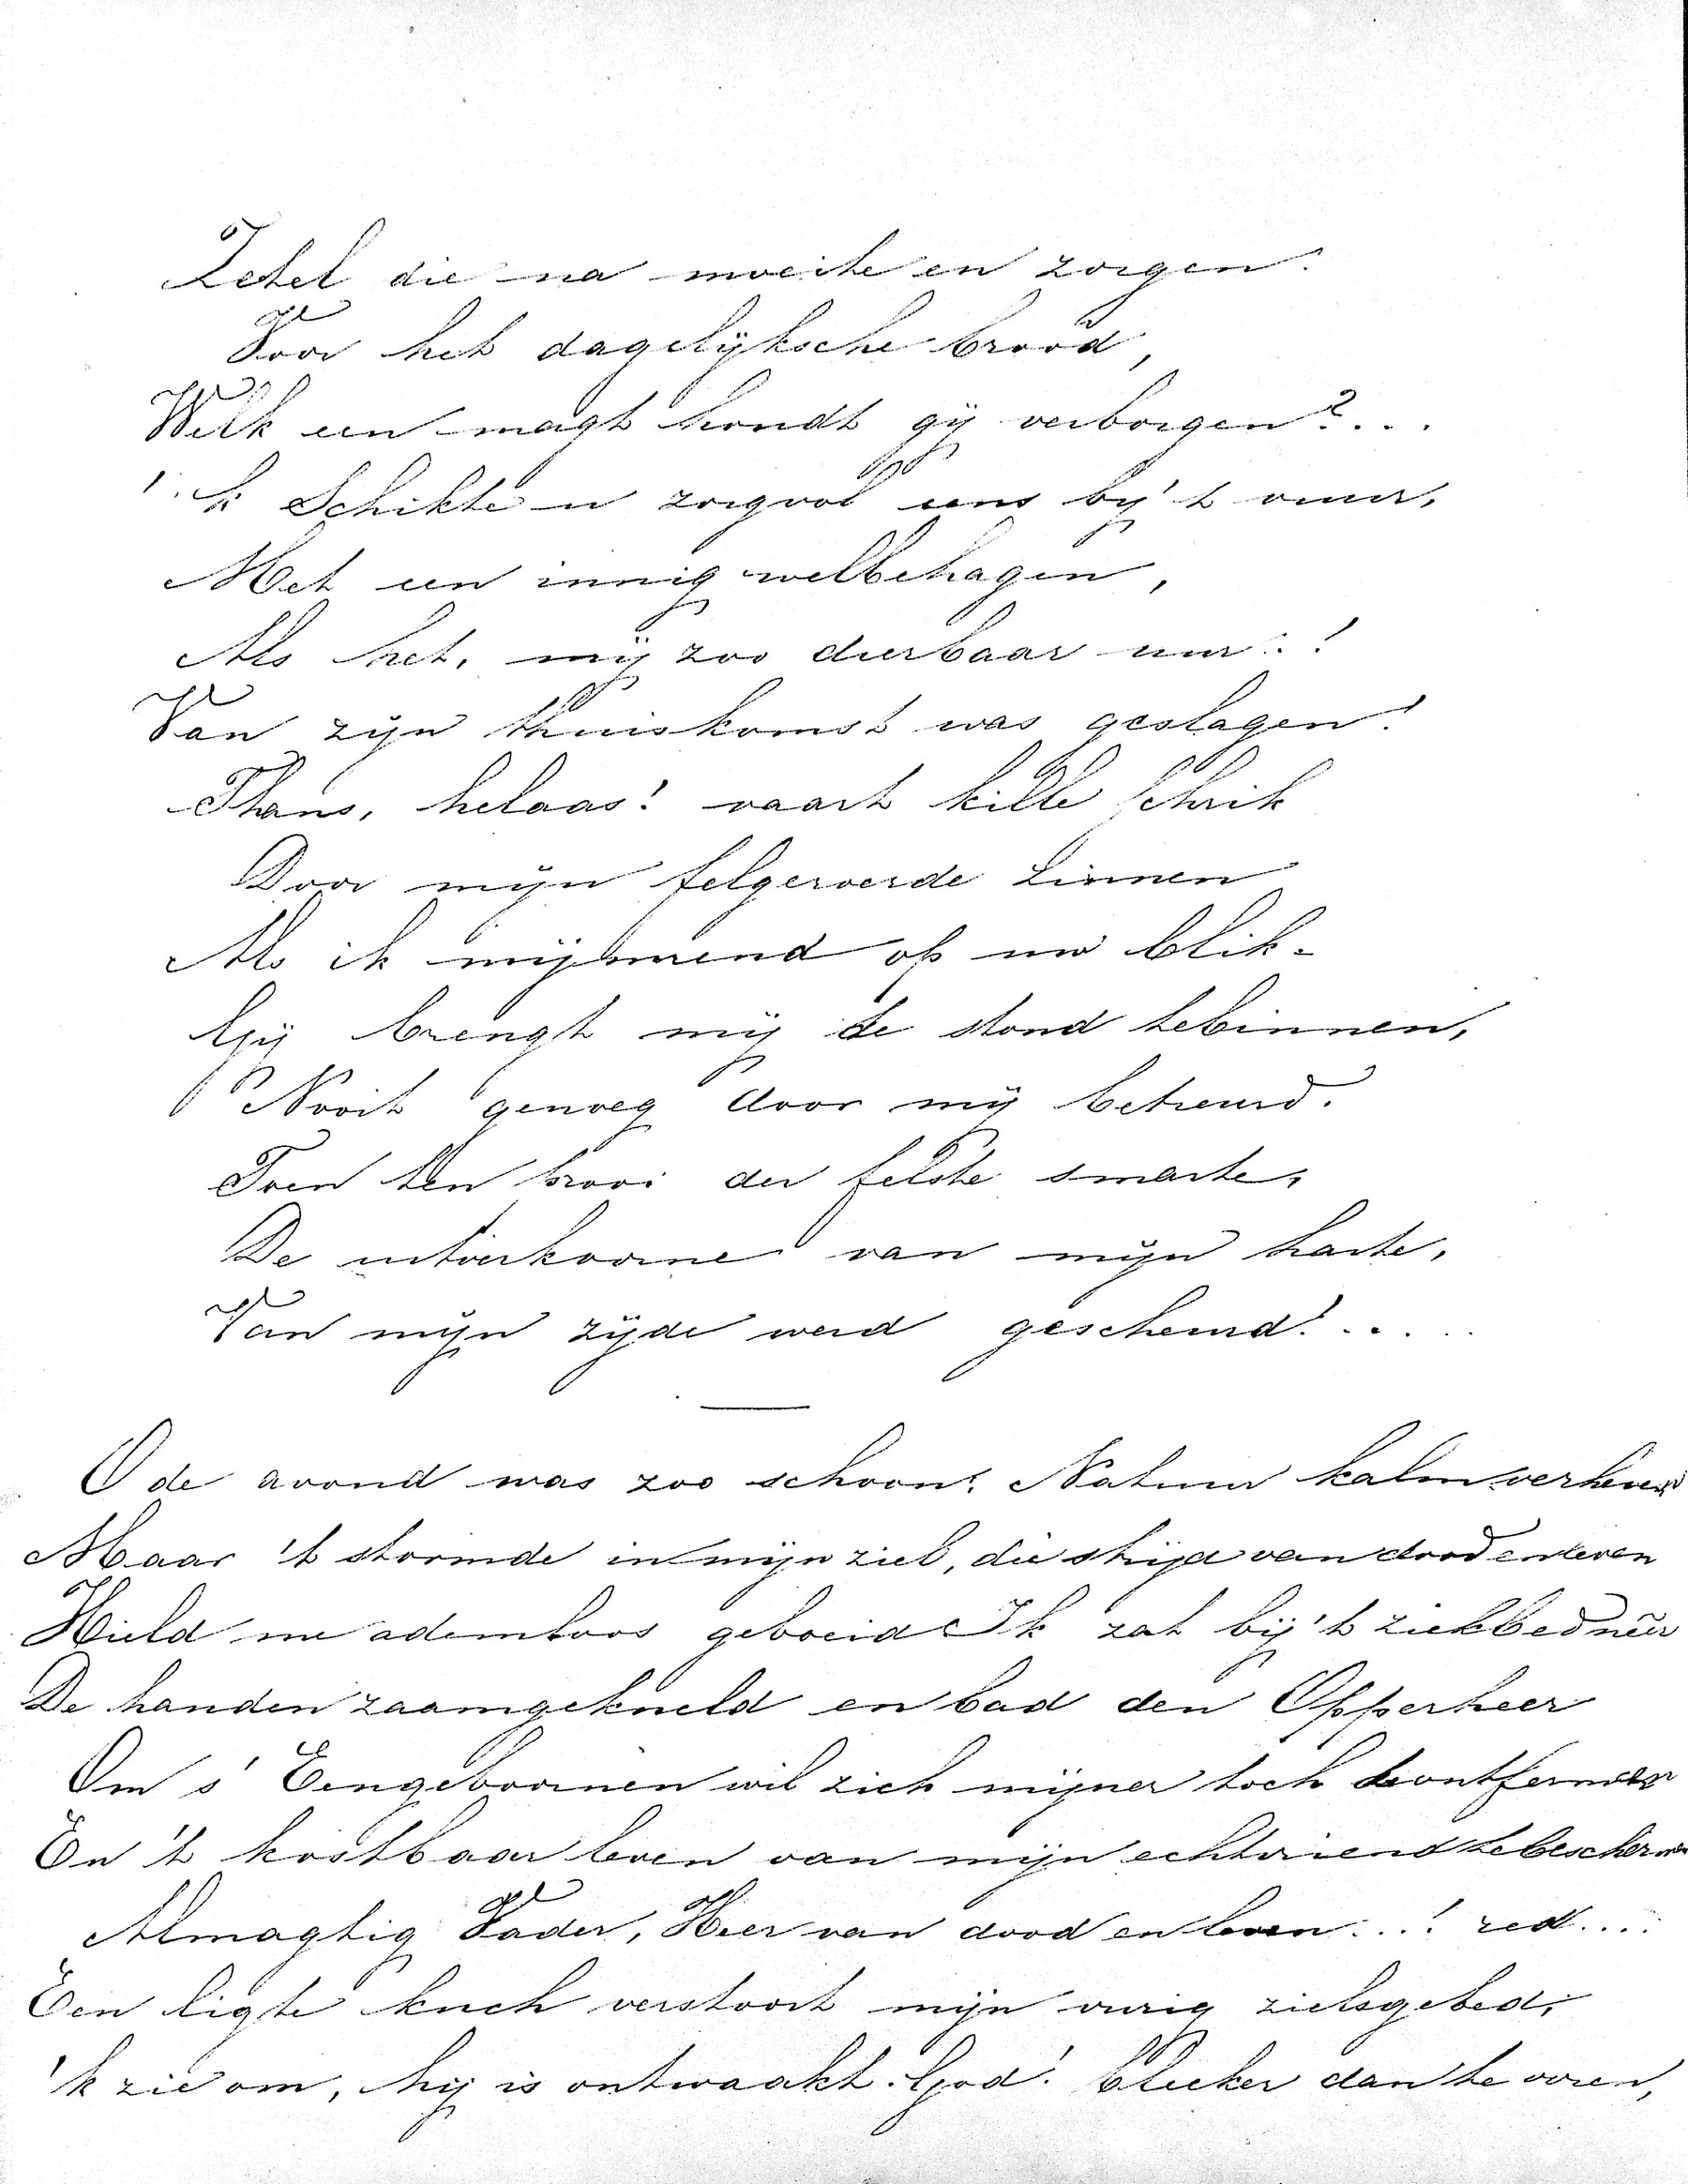 Zetel die na moeite en zorgen.
Voor het dagelijksche brood,
Welk een magt houdt gij verborgen?...
'k Schikte u zorgvol eens bij 't vuur,
Met een innig welbehagen,
Als het, mij zoo dierbaar uur..!
Van zijn thuiskomst was geslagen!
Thans, helaas! vaart kille schrik
Door mijn felgeroerde zinnen
Als ik mijmrend op uw blik-
Gij brengt mij de stond tebinnen,
Nooit genoeg door mij betreurd.
Toen ten prooi der felste smarte,
De uitverkoorne van mijn harte,
Van mijn zijde werd gescheurd!....
O de avond was zoo schoon! Natuur kalm verheven
Maar 't stormde in mijn ziel, die strijd van dood en leven
Hield me ademloos geboeid Ik zat bij 't ziekbed neêr
De handen zaamgekneld en bad den Opperheer
Om s' Eengeboornen wil zich mijner toch te ontfermen
En 't kostbaar leven van mijn echtvriend te beschermen
Almagtig Vader, Heer van dood en leven...! red....
Een ligte kuch verstoort mijn vurig zielsgebed;
'k zie om, hij is ontwaakt. God! bleeker dan te voren,